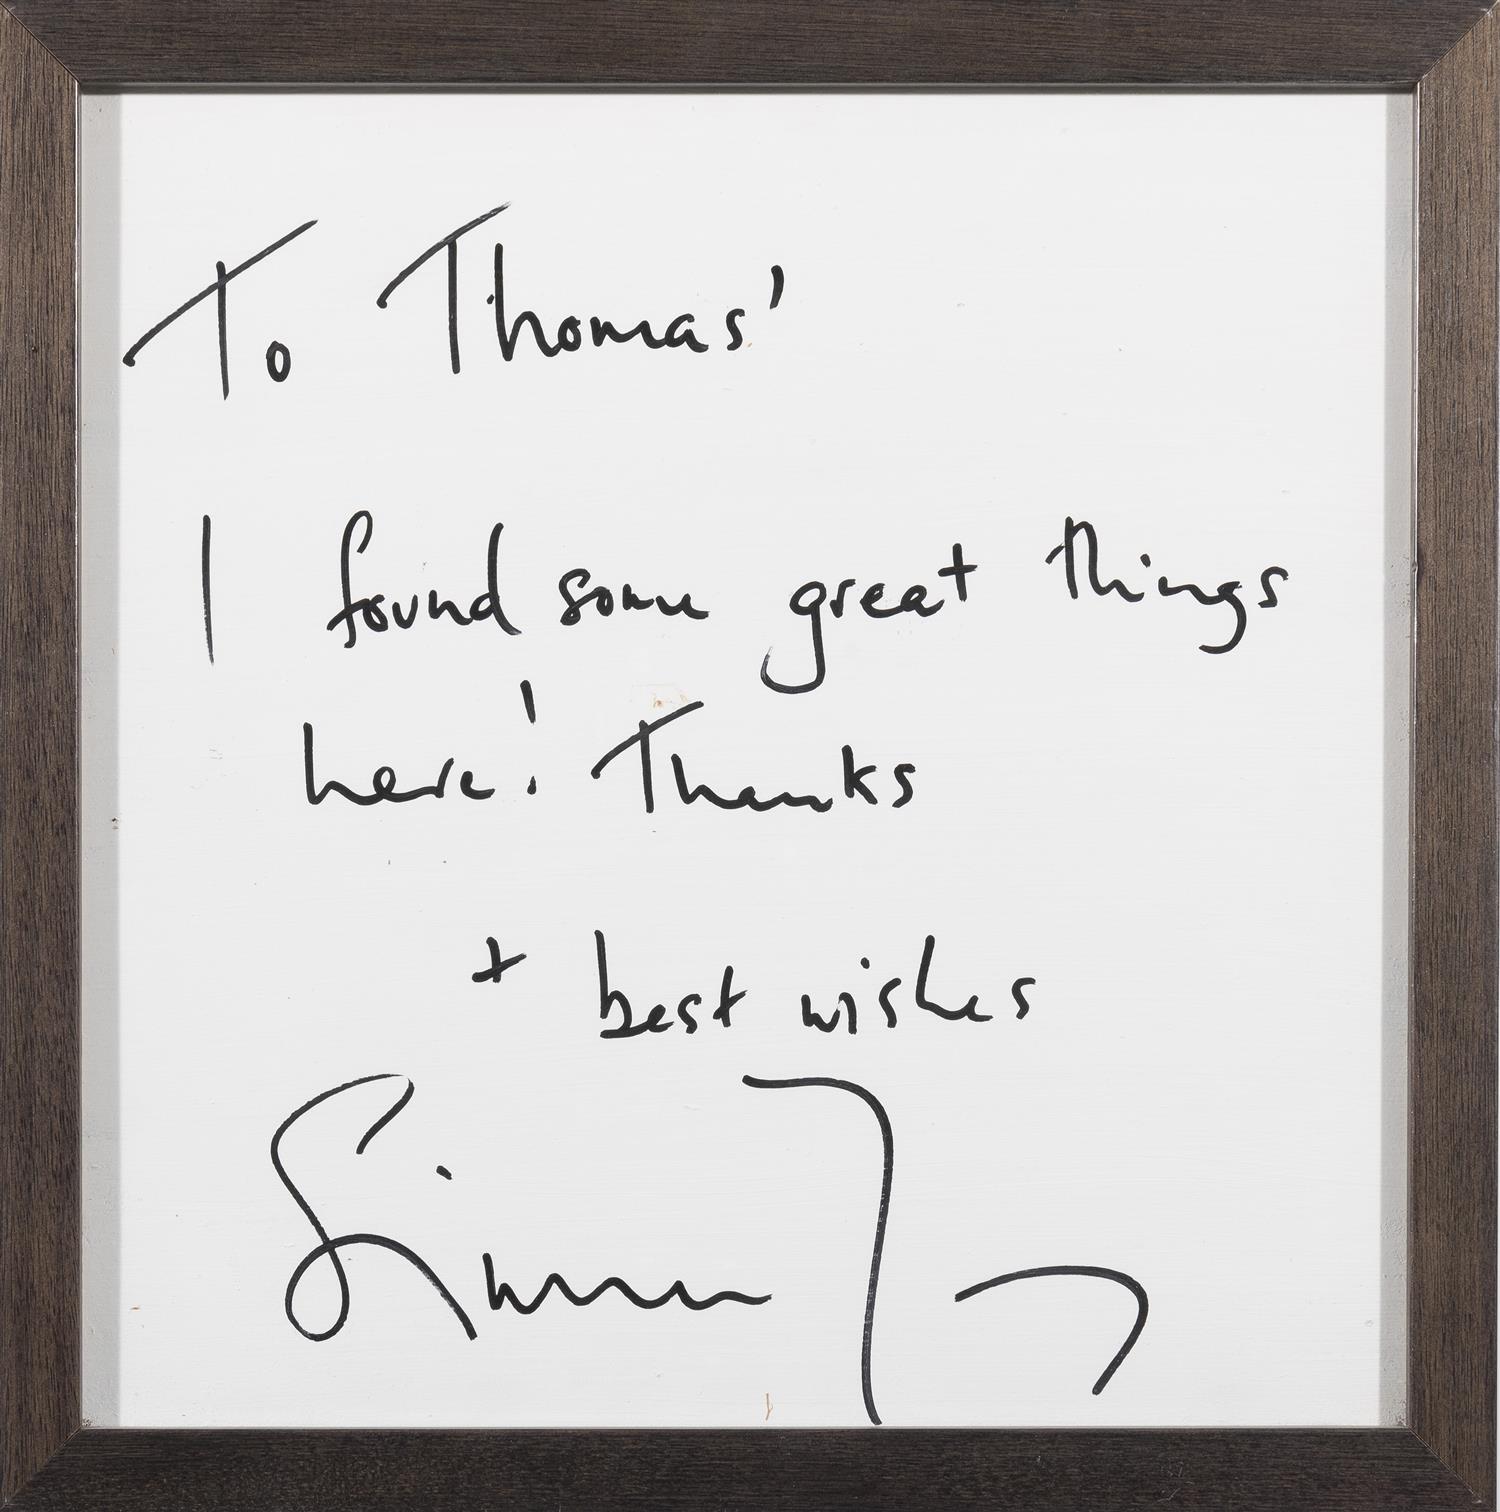 To Thomas'
I found some great things
here! Thanks
+ best wishes
Simon